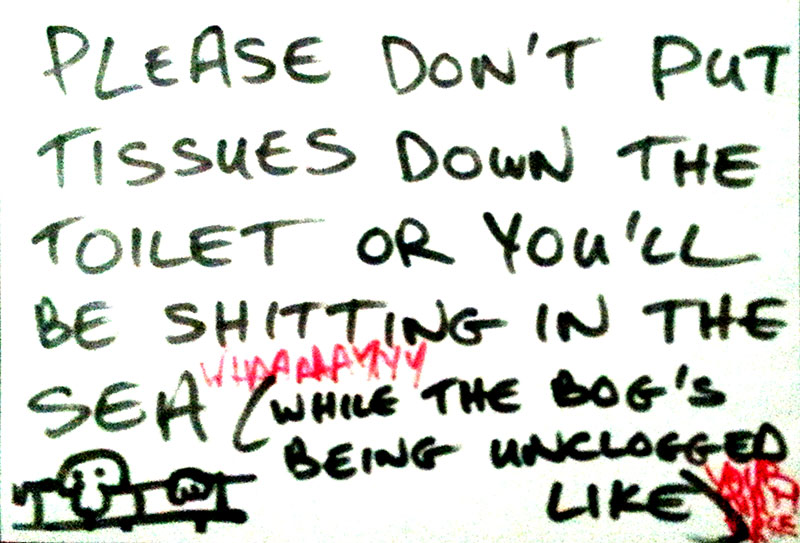 PLEASE DON'T PUT
TISSUES DOWN THE
TOILET OR YOU'LL
BE SHITTING IN THE
SEA (WHILE THE BOG'S
WHAAAAAYYYY
BEING UNCLOGGED
LIKE)